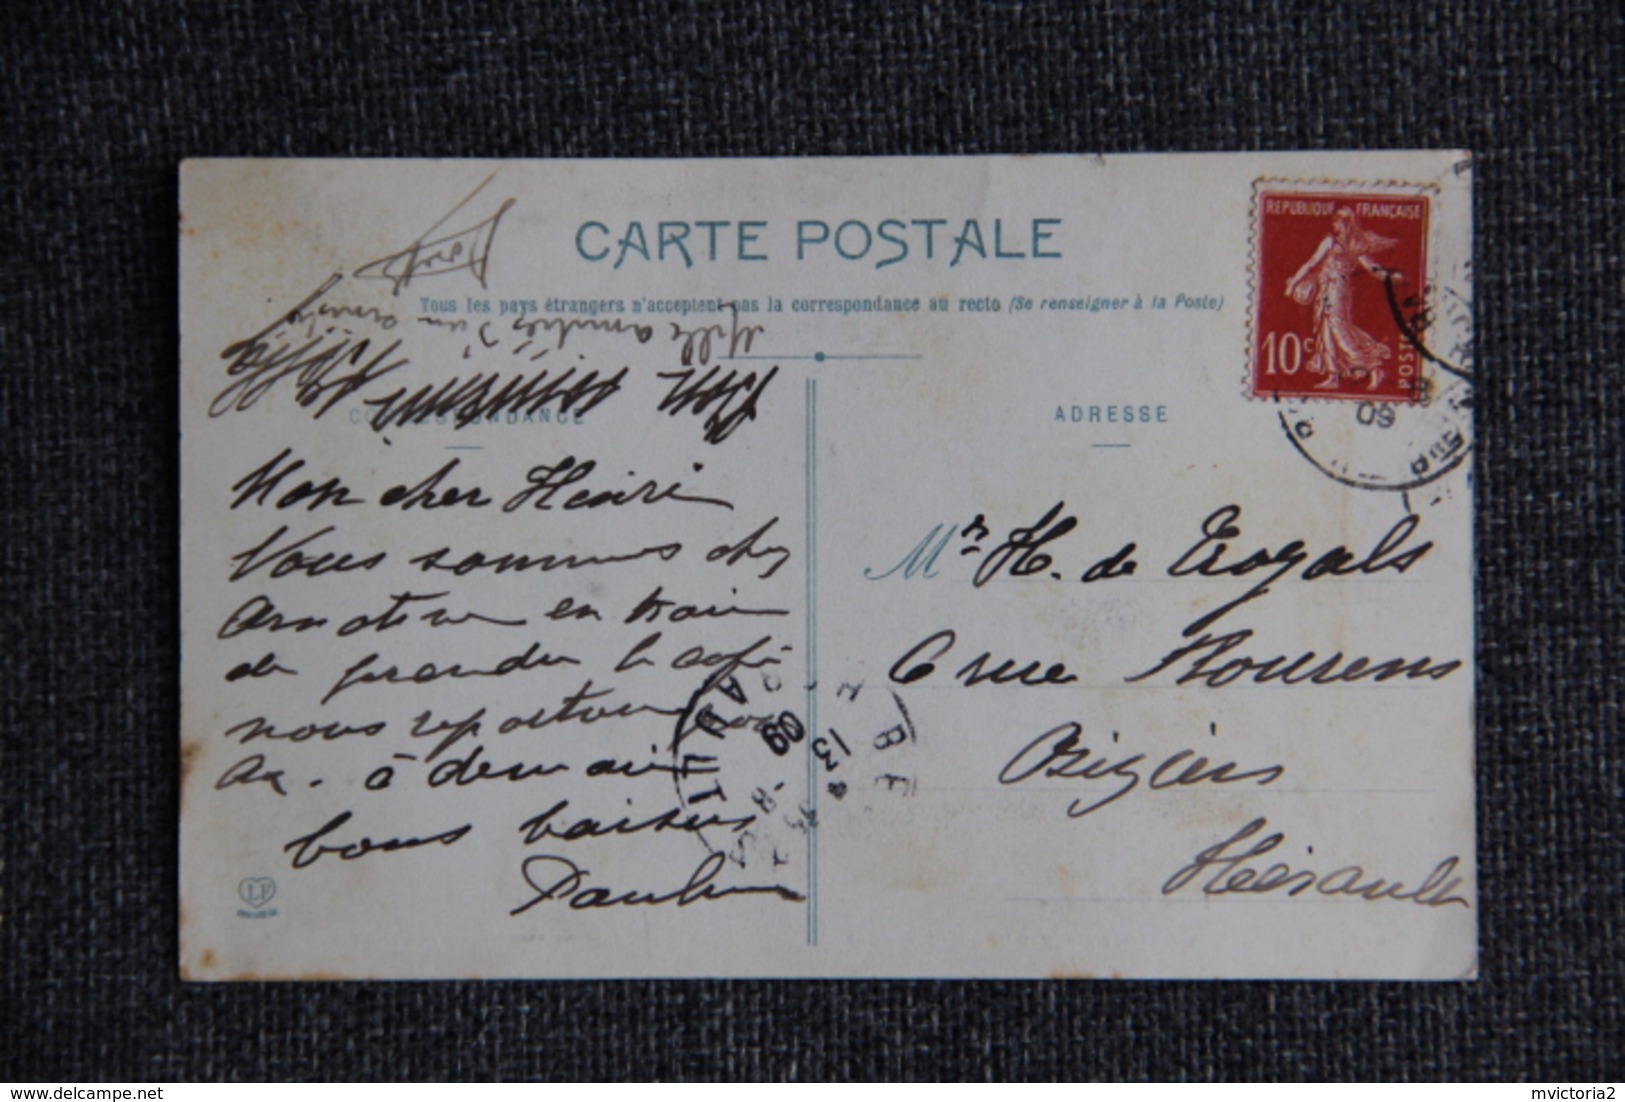 CARTE POSTALE
Tous les pays étrangers n'acceptent pas la correspondance au recto (Se renseigner à la Poste)
Mille amitiés d'un
CORRESPONDANCE
Mon cher Henri
Nous sommes chez
en train
de prendre le café
nous repartons
à demain
bons baisers
ADRESSE
Mr H. de Trogals
6 rue Flourens
Béziers
Hérault
REPUBLIQUE FRANCAISE
10c
POSTES
09
13
09
LF
delcampe.net
mvictoria2